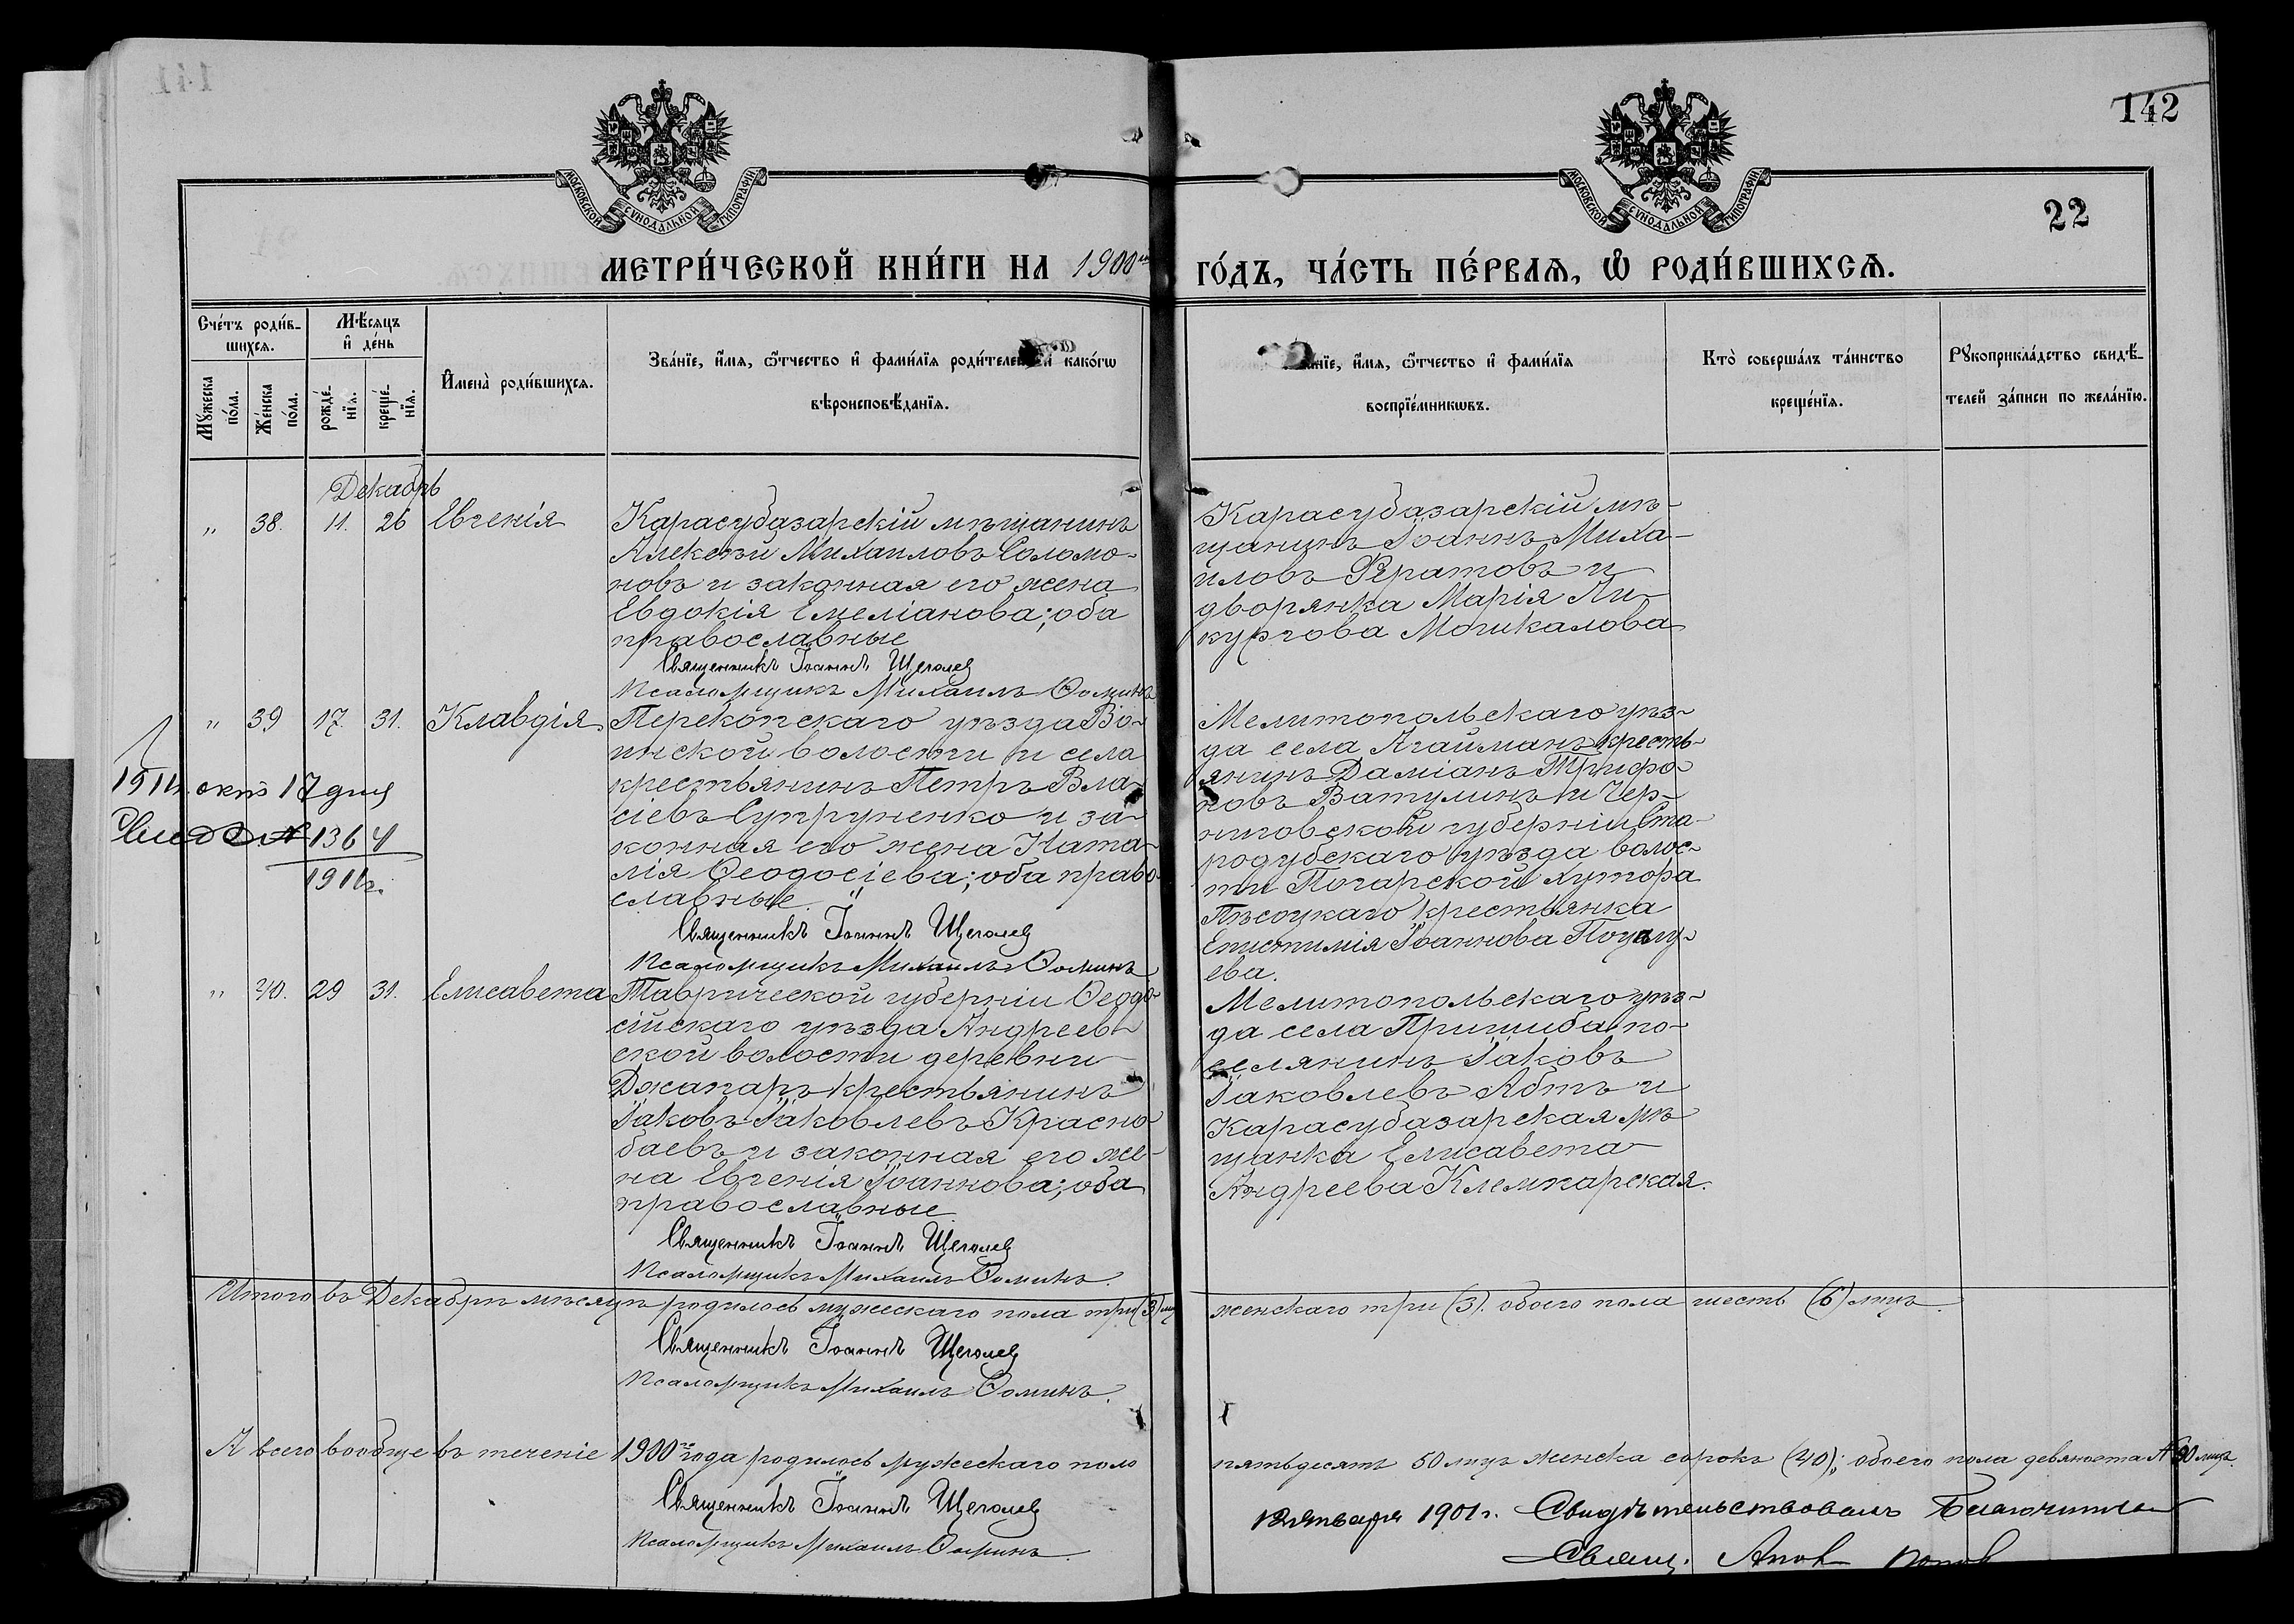 142
22
МОСКОВСКОЙ СѴНОДАЛЬНОЙ ТИПОГРАФІИ
МОСКОВСКОЙ СѴНОДАЛЬНОЙ ТИПОГРАФІИ
МЕТРИ́ЧЕСКОЙ КНИ́ГИ НА 1900й ГО́ДЪ, ЧА́СТЬ ПЕ́РВАЯ, Ѡ РОДИ́ВШИХСЯ.
Сче́тъ роди́в-
шихся.
Му́жеска
по́ла.
Же́нска
по́ла.
Мѣ́сяцъ
и҆ де́нь
рожде́-
нїя.
креще́-
нїя.
И҆мена̀ роди́вшихся.
Зва́нїе, и҆́мя, ѻ҆́тчество и҆ фами́лїя роди́телей, и҆ како́гѡ
вѣроисповѣ́данїя.
Зва́нїе, и҆́мя, ѻ҆́тчество и҆ фами́лїя
воспрїе́мникѡвъ.
Кто̀ соверша́лъ та́инство
креще́нїя.
Рꙋкоприкла́дство свидѣ́-
телей за́писи по жела́нїю.
Декабрь
„ 38. 11. 26 Евгенія
Карасубазарскій мѣщанинъ
Алексѣй Михаиловъ Соломо-
новъ и законная его жена
Евдокія Емеліанова; оба
православные
Священникъ Іоаннъ Щеголев
Псаломщикъ Михаилъ Ѳоминъ
Карасубазарскій мѣ-
щанинъ Іоаннъ Миха-
иловъ
дворянка Марія Ли-
кургова Могикалова
„ 39 17. 31. Клавдія
Перекопскаго уѣзда Во-
инской волости и села
крестьянинъ Петръ Вла-
сіевъ Супруненко и за-
конная его жена Ната-
лія Ѳеодосіева; оба право-
славные.
Священникъ Іоаннъ Щеголев
Псаломщикъ Михаилъ Ѳоминъ
Мелитопольскаго уѣз-
да села Агайманъ кресть-
янинъ Даміанъ Трифо-
новъ Ватулинъ и Чер-
ниговской губерніи Ста-
родубскаго уѣзда волос-
ти Погарской хутора
Пѣсоцкаго крестьянка
Епистимія Іоаннова Поцелу-
ева.
1911г. окт 17 дня
№ 1364
1911г.
„ 40. 29 31. Елисавета
Таврической губерніи Ѳеодо-
сійскаго уѣзда Андреев-
ской волости деревни
Джапаръ крестьянинъ
Іаковъ Іаковлевъ Красно-
баевъ и законная его же-
на Евгенія Іоаннова; оба
православные
Священникъ Іоаннъ Щеголев
Псаломщикъ Михаилъ Ѳоминъ.
Мелитопольскаго уѣз-
да села Пришиба по-
селянинъ Іаковъ
Іаковлевъ Абтъ и
Карасубазарская мѣ-
щанка Елисавета
Андреева Клемпарская.
Итого въ Декабрѣ мѣсяцѣ родилось мужескаго пола три (3) лиц женскаго три (3). обоего пола шесть (6) лицъ.
Священникъ Іоаннъ Щеголев
Псаломщикъ Михаилъ Ѳоминъ.
А всего вообще въ теченіе 1900го года родилось мужескаго пола пятьдесятъ 50 лицъ женска сорокъ (40); обоего пола девяноста 90 лицъ.
Священникъ Іоаннъ Щеголев
Псаломщикъ Михаилъ Ѳоминъ.
12 января 1901 г. Свидѣтельствовалъ Благочинн
Свящ. Попов